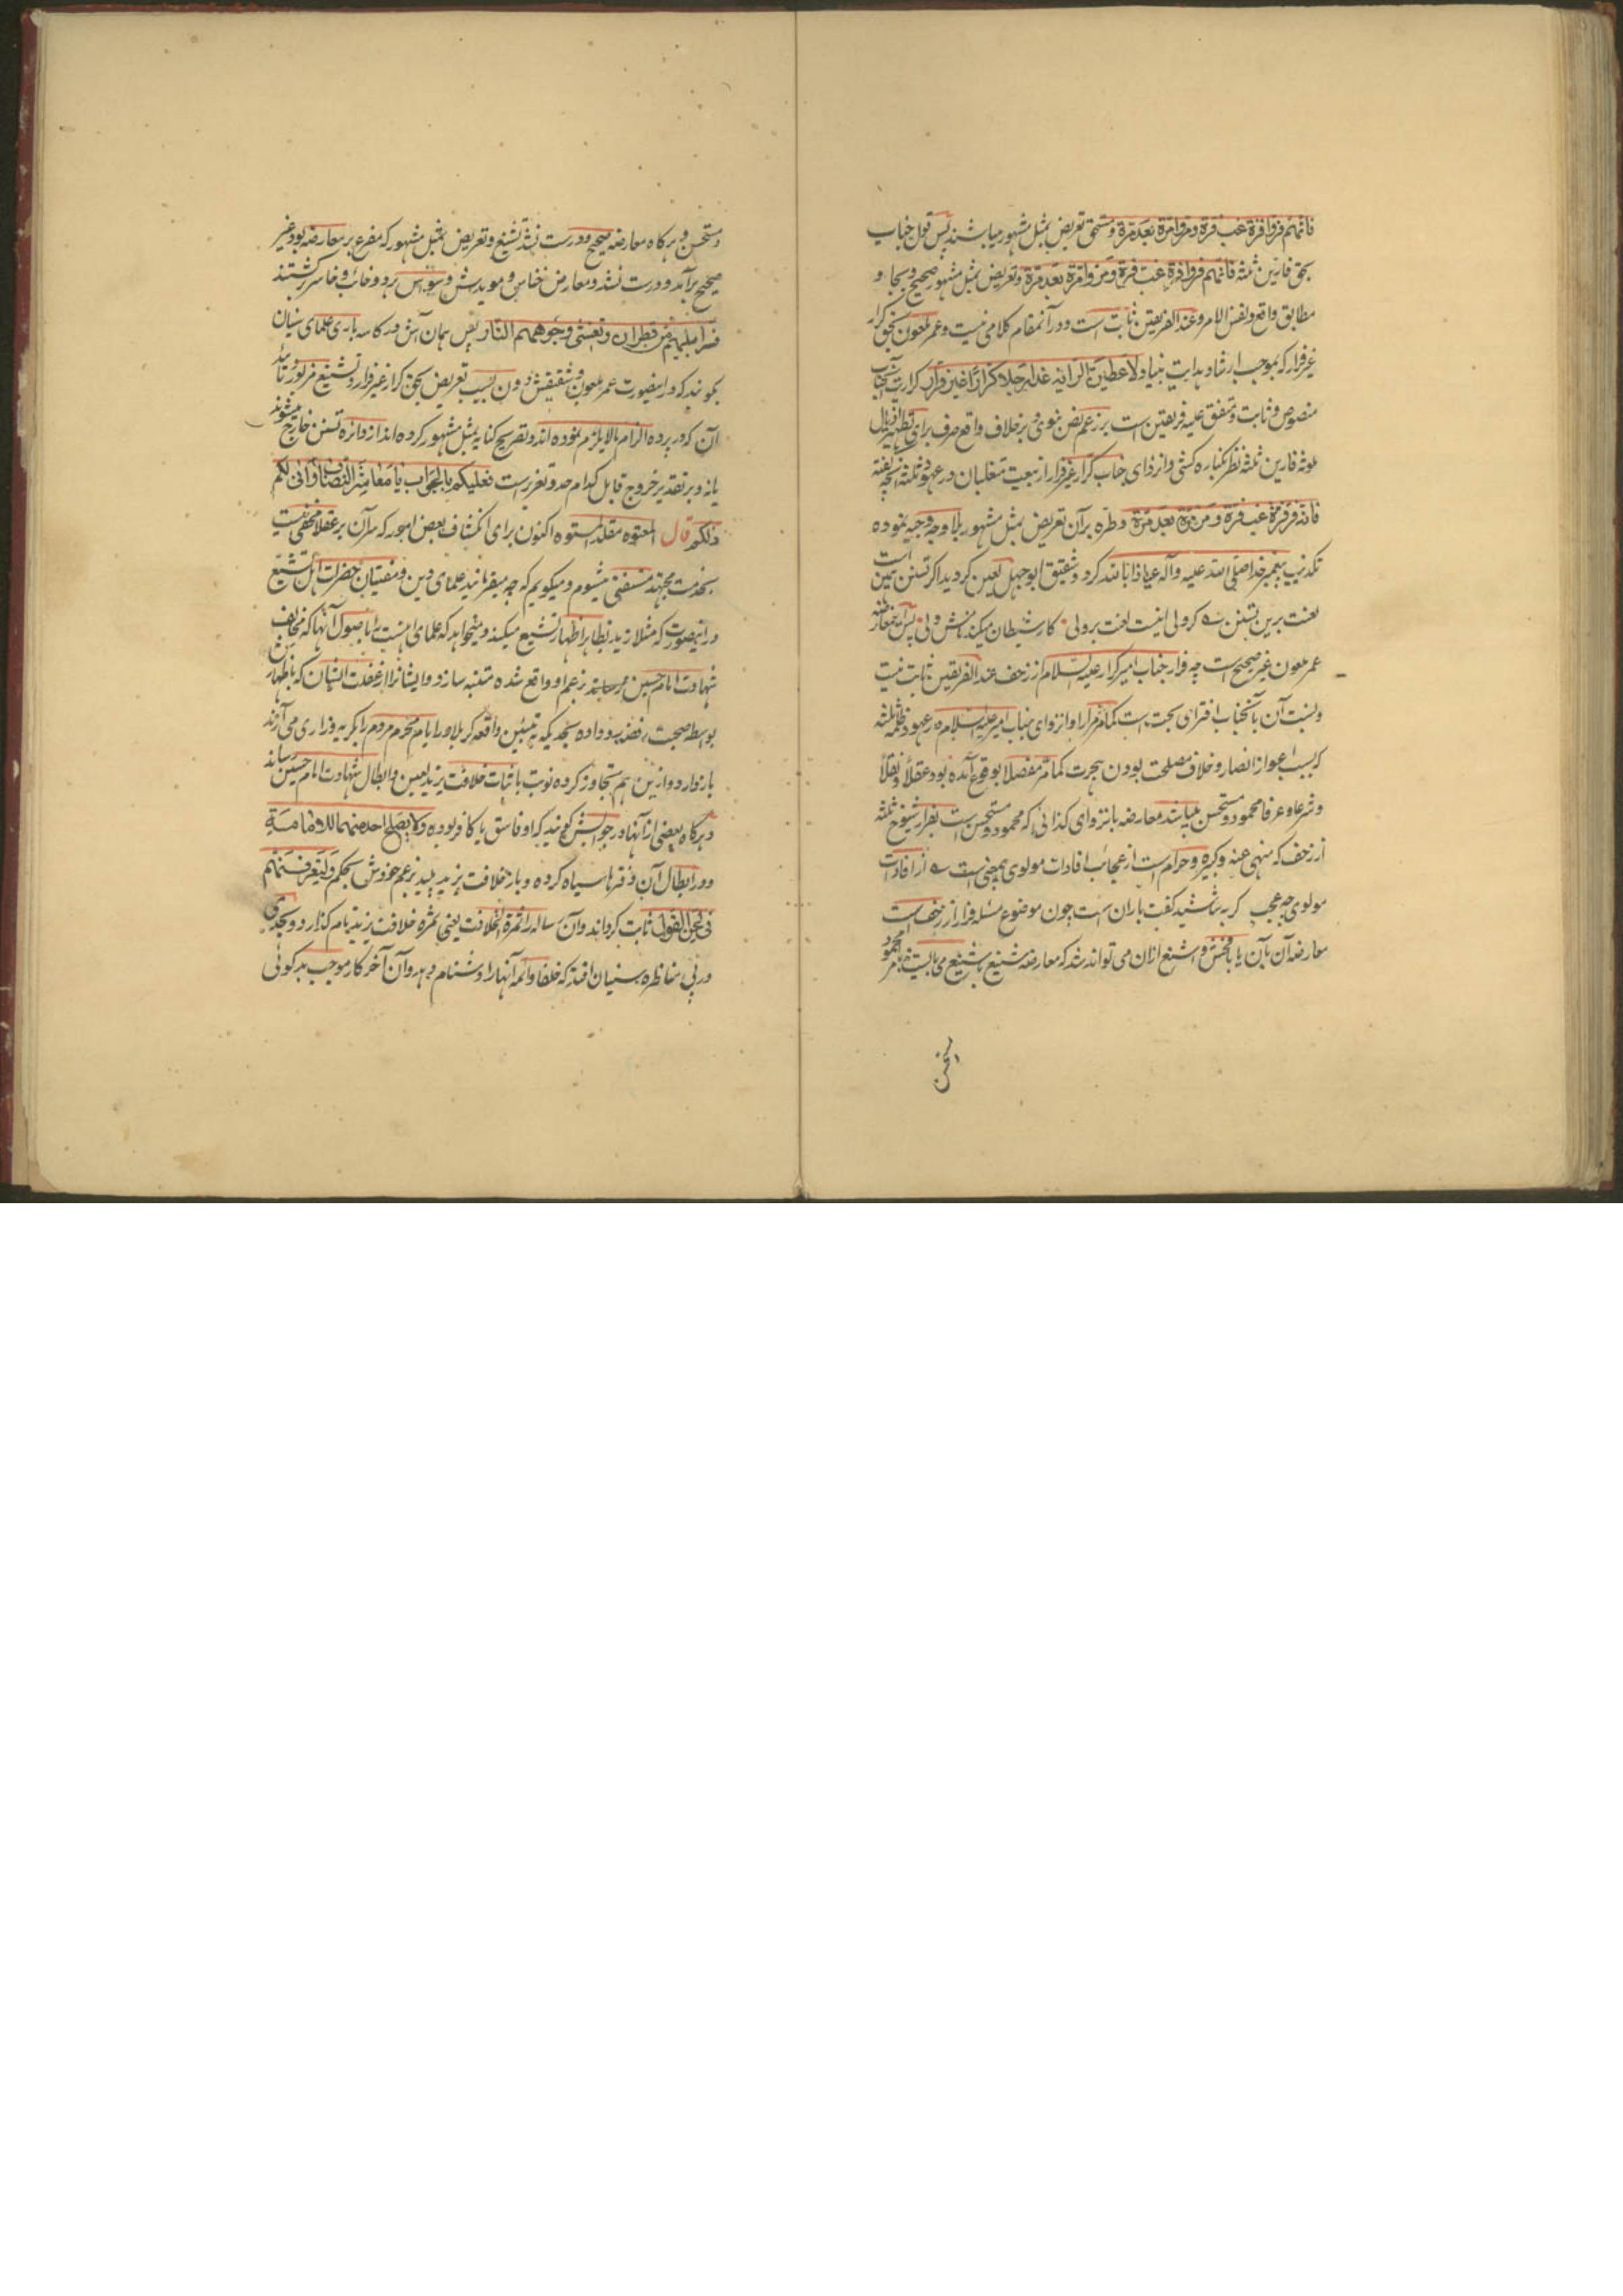 فانهم فروا فرة غب فرة ومروا مرة بعد مرة ومستحق تعریض بمثل مشهور میباشند پس قول جناب
بحق فارین ثلثه فانهم فروا فرة غب فرة و مروا مرة بعد مرة وتعریض بمثل مشهور صحیح و بجا و
مطابق واقع ونفس الامر وعند الفریقین ثابت است ودر آنمقام کلامی نیست وعمر ملعون بحق کرار
غیر فرار که بموجب ارشاد هدایت بنیاد لاعطین الرایة غدا رجلا کرارا غیر فرار کراریت آنجناب
منصوص وثابت ومتفق علیه فریقین است برزعم نص نبوی وبرخلاف واقع صرف برای تطهیر اذیال
ملوثه فارین ثلثه نظر بکناره کشی وانزوای جناب کرار غیر فرار از بیعت متغلبان در عهود ثلثه گفته
فانه فر فرة غب فرة و مر مرة بعد مرة وطره برآن تعریض بمثل مشهور بلا وجه وجیه نموده
تکذیب پیغمبر خدا صلی الله علیه وآله عیاذا بالله کرد وشقیق ابوجهل لعین گردید اگر تسنن همین است
لعنت برین تسنن ه گر ولی اینست لعنت بر ولی ٠ کار شیطان میکند نامش ولی ٠ پس معارضه
عمر ملعون غیر صحیح است چه فرار جناب امیر کرار علیه السلام از زحف عند الفریقین ثابت نیست
ونسبت آن بآنجناب افترای بحت است کما مر مرارا وانزوای جناب امیر علیه السلام در عهود ظلمه ثلثه
که بسبب اعواز انصار وخلاف مصلحت بودن هجرت کما مر مفصلا بوقوع آمده بود عقلا ونقلا
وشرعا وعرفا محمود ومستحسن میباشد معارضه بانزوای کذائی که محمود ومستحسن است بفرار شیوخ ثلثه
از زحف که منهی عنه وکبیره وحرام است از عجائب افادات مولوی همچنین است ه از افادات
مولوی چه عجب گربه شاشید گفت باران است چون موضوع مسئله فرار از زحف است
معارضه آن بآن یا بافحش واشنع ازان می تواند شد که معارضه شنیع باشنع می بایست نه بامر محمود
مستحسن
ومستحسن وهرگاه معارضه صحیح ودرست نشد تشنیع وتعریض بمثل مشهور که مفرع بر معارضه بود غیر
صحیح برآمد ودرست نشد ومعارض خناس ومویدش وسواس هر دو خائب وخاسر گشتند
سرابیلهم من قطران وتغشی وجوههم النار پس همان آش در کاسه باری علمای سنیان
بگویند که درینصورت عمر ملعون وشقیقش دون بسبب تعریض بحق کرار غیر فرار وتشنیع مزبور وتائید
آن که در پرده الزام ما لا یلزم نموده اند وتصریح کنایه بمثل مشهور کرده اند از دائره تسنن خارج میشوند
یا نه وبر تقدیر خروج قابل کدام حد وتعزیر است فعلیکم بالجواب یا معاشر النصاب وانی لکم
ذلکم قال المعتوه مقلد المستوه اکنون برای انکشاف بعض امور که سر آن بر عقلا مخفی نیست
بخدمت مجتهد مستفتی میشوم ومیگویم که چه میفرمایند علمای دین ومفتیان حضرات اهل تشیع
درینصورت که مثلا زید بظاهر اظهار تشیع میکند ومیخواهد که علمای اهلسنت را باصول آنها که مخالف
شهادت امام حسین بزعم او واقع شده متنبه سازد وایشانرا از غفلت ایشان که باظهار این
بواسطه صحبت روافض رو داده بحدیکه بتبیین واقعه کربلا ورا ایام محرم مردم را بگریه وزاری می آرند
باز دارد وازین هم تجاوز کرده نوبت باثبات خلافت یزید لعین وابطال شهادت امام حسین رساند
وهرگاه بعضی از آنها در جوابش گویند که او فاسق یا کافر بوده ولا یصلح احد منهما للامامة
ودر ابطال آن دفترها سیاه کرده وباز خلافت یزید پلید بزعم خودش بحکم ولتعرفنهم
فی لحن القول ثابت گرداند وآن رساله را ثمرة الخلافت یعنی ثمره خلافت یزید نام گذارد وبجدی
درپی مناظره سنیان افتد که خلفا وائمه آنها را دشنام دهد وآن آخر کار موجب بدگوئی